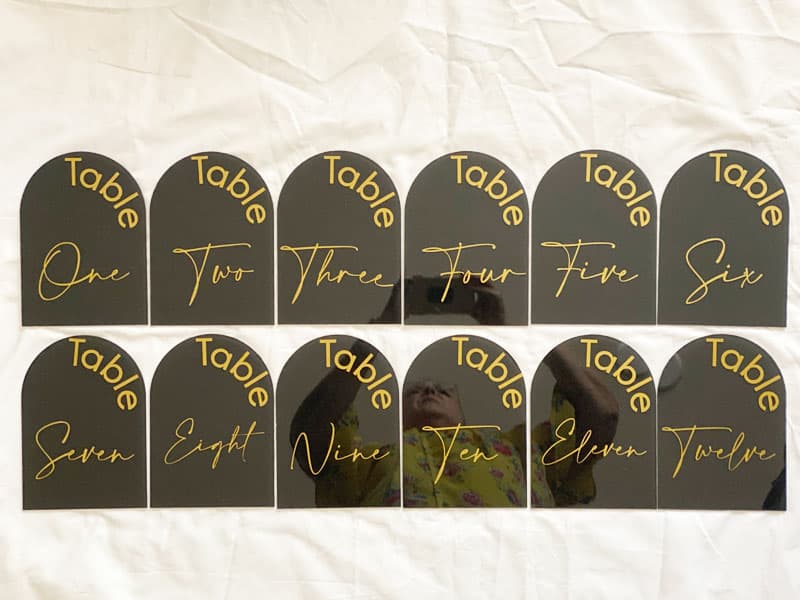 Table
One
Table
Two
Table
Three
Table
Four
Table
Five
Table
Six
Table
Seven
Table
Eight
Table
Nine
Table
Ten
Table
Eleven
Table
Twelve